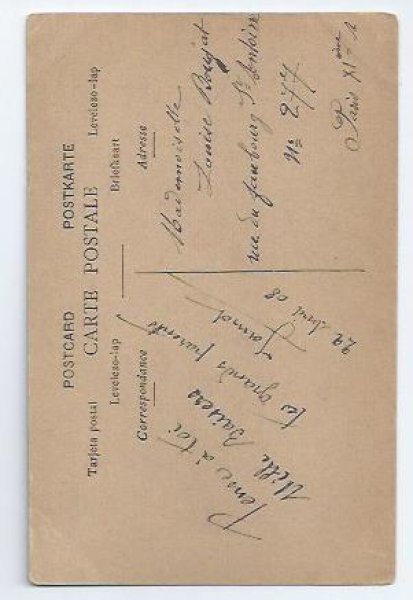 POSTCARD POSTKARTE
CARTE POSTALE
Tarjeta postal Levelezo-lap
Levelezo-lap Briefkaart
Correspondance Adresse
Pense à toi
Mille Baisers
tes grands parents
22 Avril 08
Mademoiselle
Louise
rue du faubourg St Antoine
No 277
Paris XIème